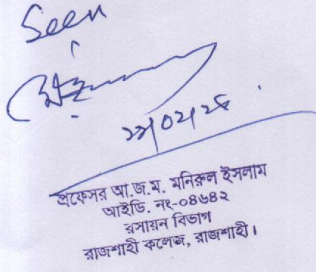 Seen
২১/০২/২৪
প্রফেসর আ.জ.ম. মনিরুল ইসলাম
আইডি. নং-০৪৬৪২
রসায়ন বিভাগ
রাজশাহী কলেজ, রাজশাহী।